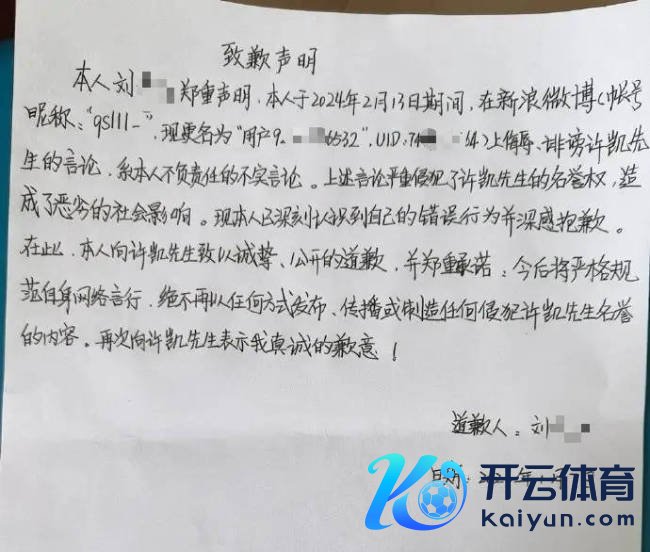 致歉声明
本人刘 郑重声明，本人于2024年2月13日期间，在新浪微博（帐号
昵称："qs111_"，现更名为"用户9 6532"，UID:74 54）上侮辱、诽谤许凯先
生的言论，系本人不负责任的不实言论。上述言论严重侵犯了许凯先生的名誉权，造
成了恶劣的社会影响。现本人已深刻认识到自己的错误行为并深感抱歉。
在此，本人向许凯先生致以诚挚、公开的道歉，并郑重承诺：今后将严格规
范自身网络言行，绝不再以任何方式发布、传播或制造任何侵犯许凯先生名誉
的内容。再次向许凯先生表示我真诚的歉意！
道歉人：刘
日期：
开云体育
kaiyun.com